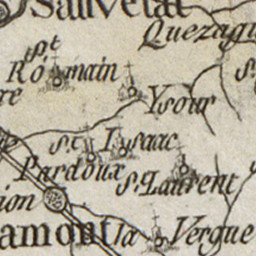 Sauvetat
Quezagu
pt
Romain
s.
re
Ysour
s.t Isaac
Pardoux
s. Laurent
ion
amont la Vergue